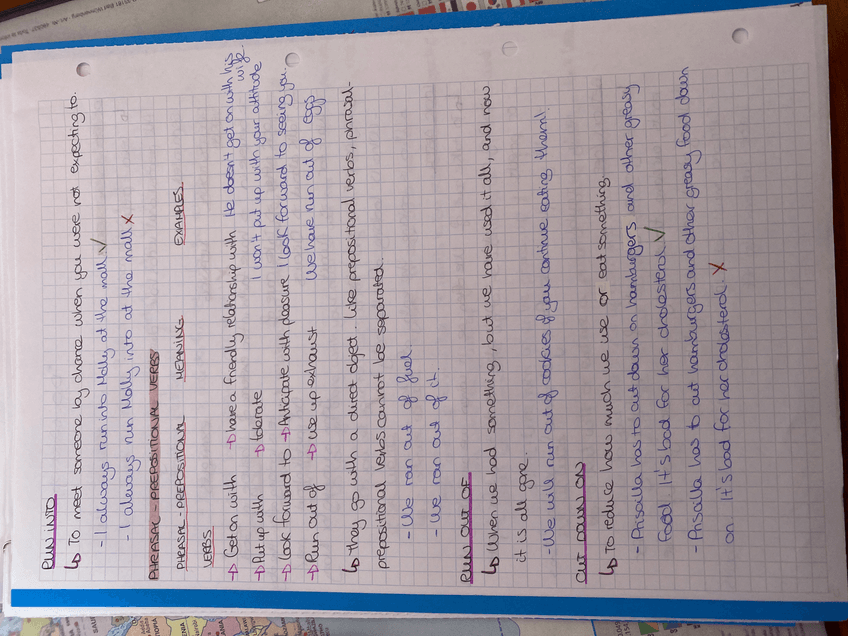 RUN INTO
↳ To meet someone by chance when you were not expecting to.
- I always run into Molly at the mall ✓
- I always run Molly into at the mall x
PHRASAL-PREPOSITIONAL VERBS
PHRASAL-PREPOSITIONAL MEANING EXAMPLES
VERBS
→ Get on with → have a friendly relationship with He doesn't get on with his wife
→ Put up with → tolerate I won't put up with your attitude
→ Look forward to → Anticipate with pleasure I look forward to seeing you
→ Run out of → use up exhaust We have run out of eggs
↳ they go with a direct object. Like prepositional verbs, phrasal-
prepositional verbs cannot be separated.
- We ran out of fuel.
- We ran out of it.
RUN OUT OF
↳ When we had something, but we have used it all, and now
it is all gone.
- We will run out of cookies if you continue eating them!.
CUT DOWN ON
↳ To reduce how much we use or eat something.
- Priscilla has to cut down on hamburgers and other greasy
food. It's bad for her cholesterol. ✓
- Priscilla has to cut hamburgers and other greasy food down
on. It's bad for her cholesterol. x